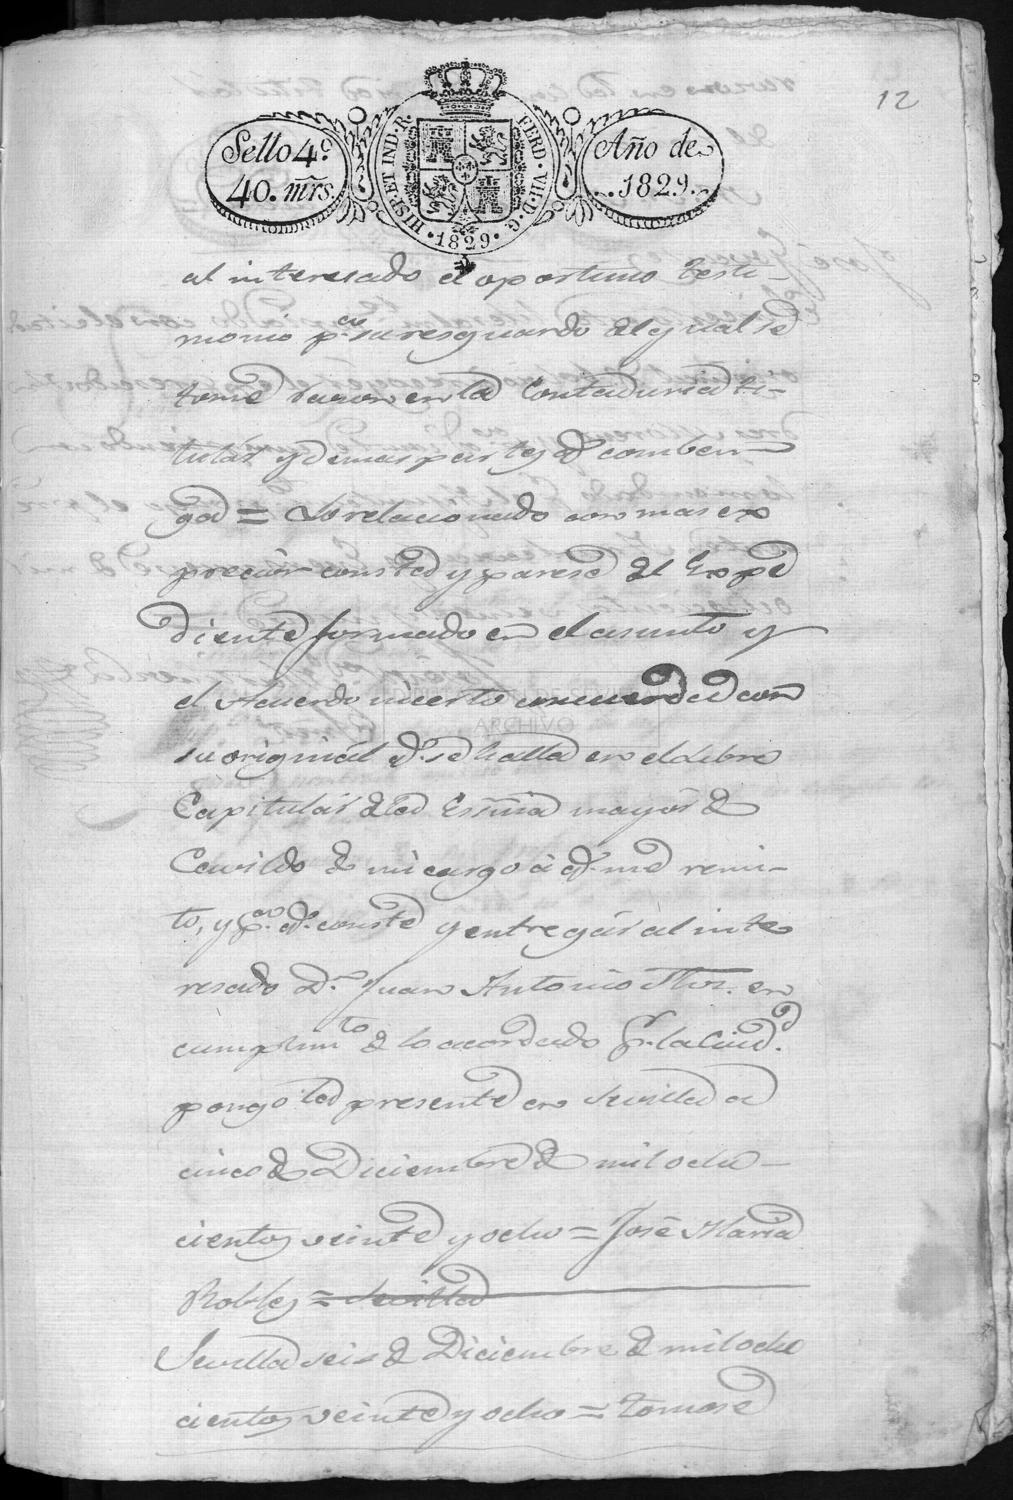 12
Sello 4º
40. mrs.
HISP. ET IND. R. FERD. VII. D. G.
1829
Año de
1829.
al interesado el oportuno testi-
monio pª su resguardo del qual se
tome razon en la Contaduria ti-
tular y demas partes qe comben-
ga = Lo relacionado con mas ex
precion consta y parese del Expe
diente formado en el asunto y
el Acuerdo incerto concuerda con
su original qe se halla en el Libro
Capitular de la Essnia mayor de
Cavildo de mi cargo á qe me remi-
to, y pª qe conste y entregar al inte
resado Dn Juan Antonio en
cumplimto de lo acordado pr la Ciud.
pongo la presente en Sevilla a
cinco de Diciembre de mil ocho-
cientos veinte y ocho = José Maria
Robles = Sevilla
Sevilla seis de Diciembre de mil ocho
cientos veinte y ocho = Tomose
ARCHIVO